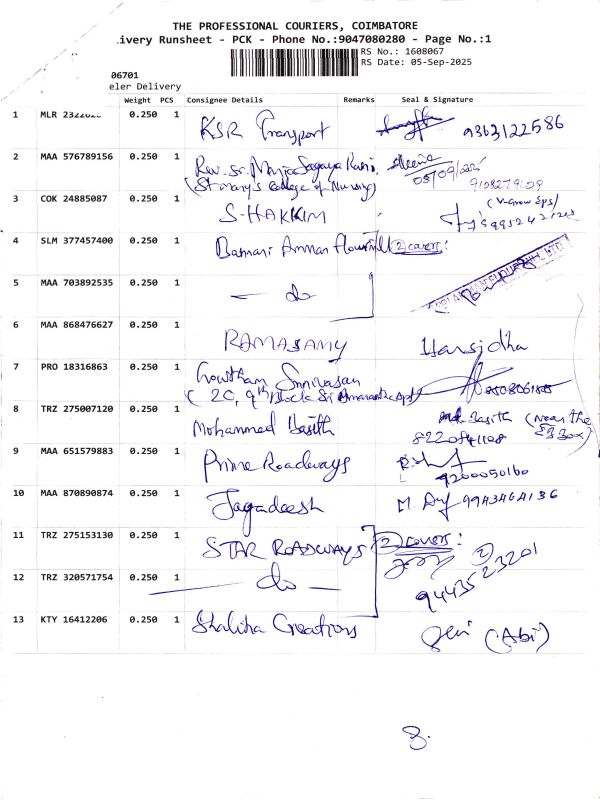 THE PROFESSIONAL COURIERS, COIMBATORE
livery Runsheet - PCK - Phone No.:9047080280 - Page No.:1
RS No.: 1608067
RS Date: 05-Sep-2025
06701
eler Delivery
Weight PCS Consignee Details Remarks Seal & Signature
1 MLR 0.250 1 KSR Transport 9363122586
2 MAA 576789156 0.250 1 Rev. Sr. Maria Sagaya Rani,
(St mary's College of Nursing)
3 COK 24885087 0.250 1 S-HAKKIM
4 SLM 377457400 0.250 1 Bannari Amman Flourmill 2 covers:
5 MAA 703892535 0.250 1 — do
6 MAA 868476627 0.250 1 RAMASAMY Harsidha
7 PRO 18316863 0.250 1 Gowtham Srinivasan
(2C, 9th Block Sri Apt)
8 TRZ 275007120 0.250 1 Mohammed Basith Basith (Near the EB Box)
9 MAA 651579883 0.250 1 Prime Roadways 9200050160
10 MAA 870890874 0.250 1 Jagadeesh 9943464136
11 TRZ 275153130 0.250 1 STAR ROADWAYS 2 covers:
9443523201
12 TRZ 320571754 0.250 1 — do —
13 KTY 16412206 0.250 1 Shalika Creations (Abi)